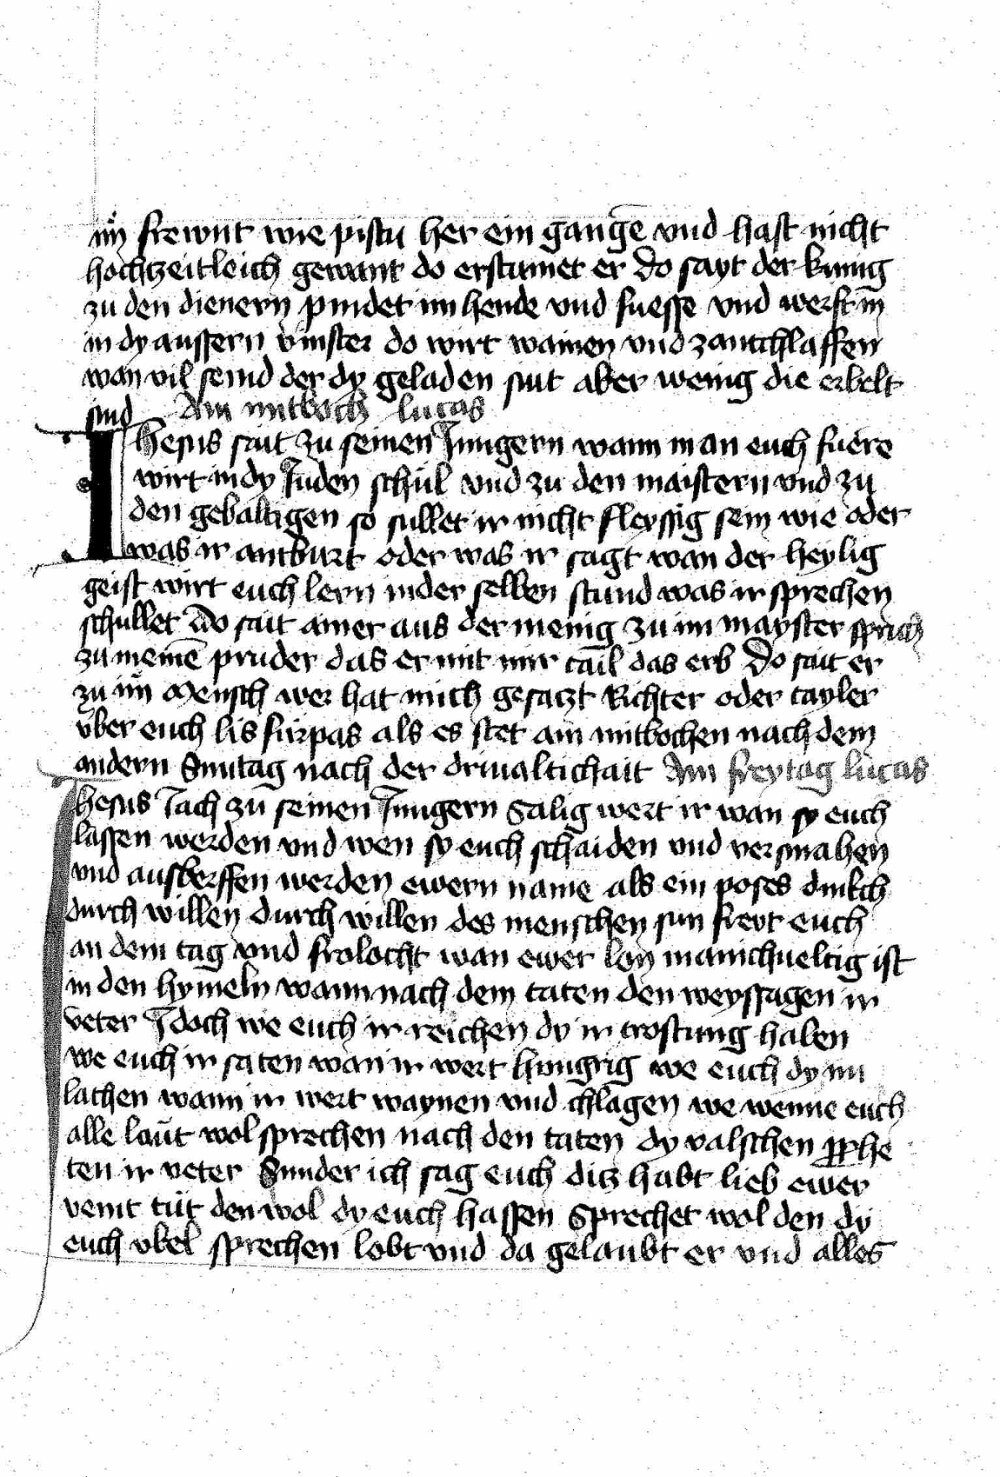 im frewnt wie pistu her ein gangē vnd hast nicht
hochtzeitleich gewant do erstumet er Do sayt der kunig
zu den dienern pindet im hende vnd fuesse vnd werft in
in dy aussern vinster do wirt wainen vnd zantchlaffen
wan vil seind der dy geladen sint aber wenig die erbelt
sind Am mitboch lucas
Ihesus sait zu seinen Jungern wann man euch fuere
wirt in dy Juden schul vnd zu den maistern vnd zu
den gebaltigen so sullet ir nicht fleyssig sein wie oder
was ir antburt oder was ir sagt wan der heylig
geist wirt euch lern in der selben stund was ir sprechen
schullet Do sait ainer aus der menig zu im mayster sprich
zu meinē pruder das er mit mir tail das erb Do sait er
zu im Mensch wer hat mich gesatzt Richter oder tayler
vber euch lis furpas als es stet am mitbochen nach dem
andern Suntag nach der driualtichait Am freytag lucas
Ihesus Jach zu seinen Jungern Salig wert ir wan sy euch
lassen werden vnd wen sy euch schaiden vnd versmahen
vnd ausberffen werden ewern name als ein poses dinkch
durch willen durch willen des menschen sun frevt euch
an dem tag vnd frolocht wan ewer lon manichueltig ist
in den hymeln wann nach dem taten den weyssagen ir
veter Idoch we euch ir reichen dy ir trostung haben
we euch ir saten wan ir wert hungrig we euch dy nu
lachen wann ir wert waynen vnd chlagen we wenne euch
alle laut wol sprechen nach den taten dy valschen prophe
ten ir veter Sunder ich sag euch ditz habt lieb ewer
veint tut den wol dy euch hassen Sprechet wol den dy
euch vbel sprechen lobt vnd da gelaubt er vnd alles